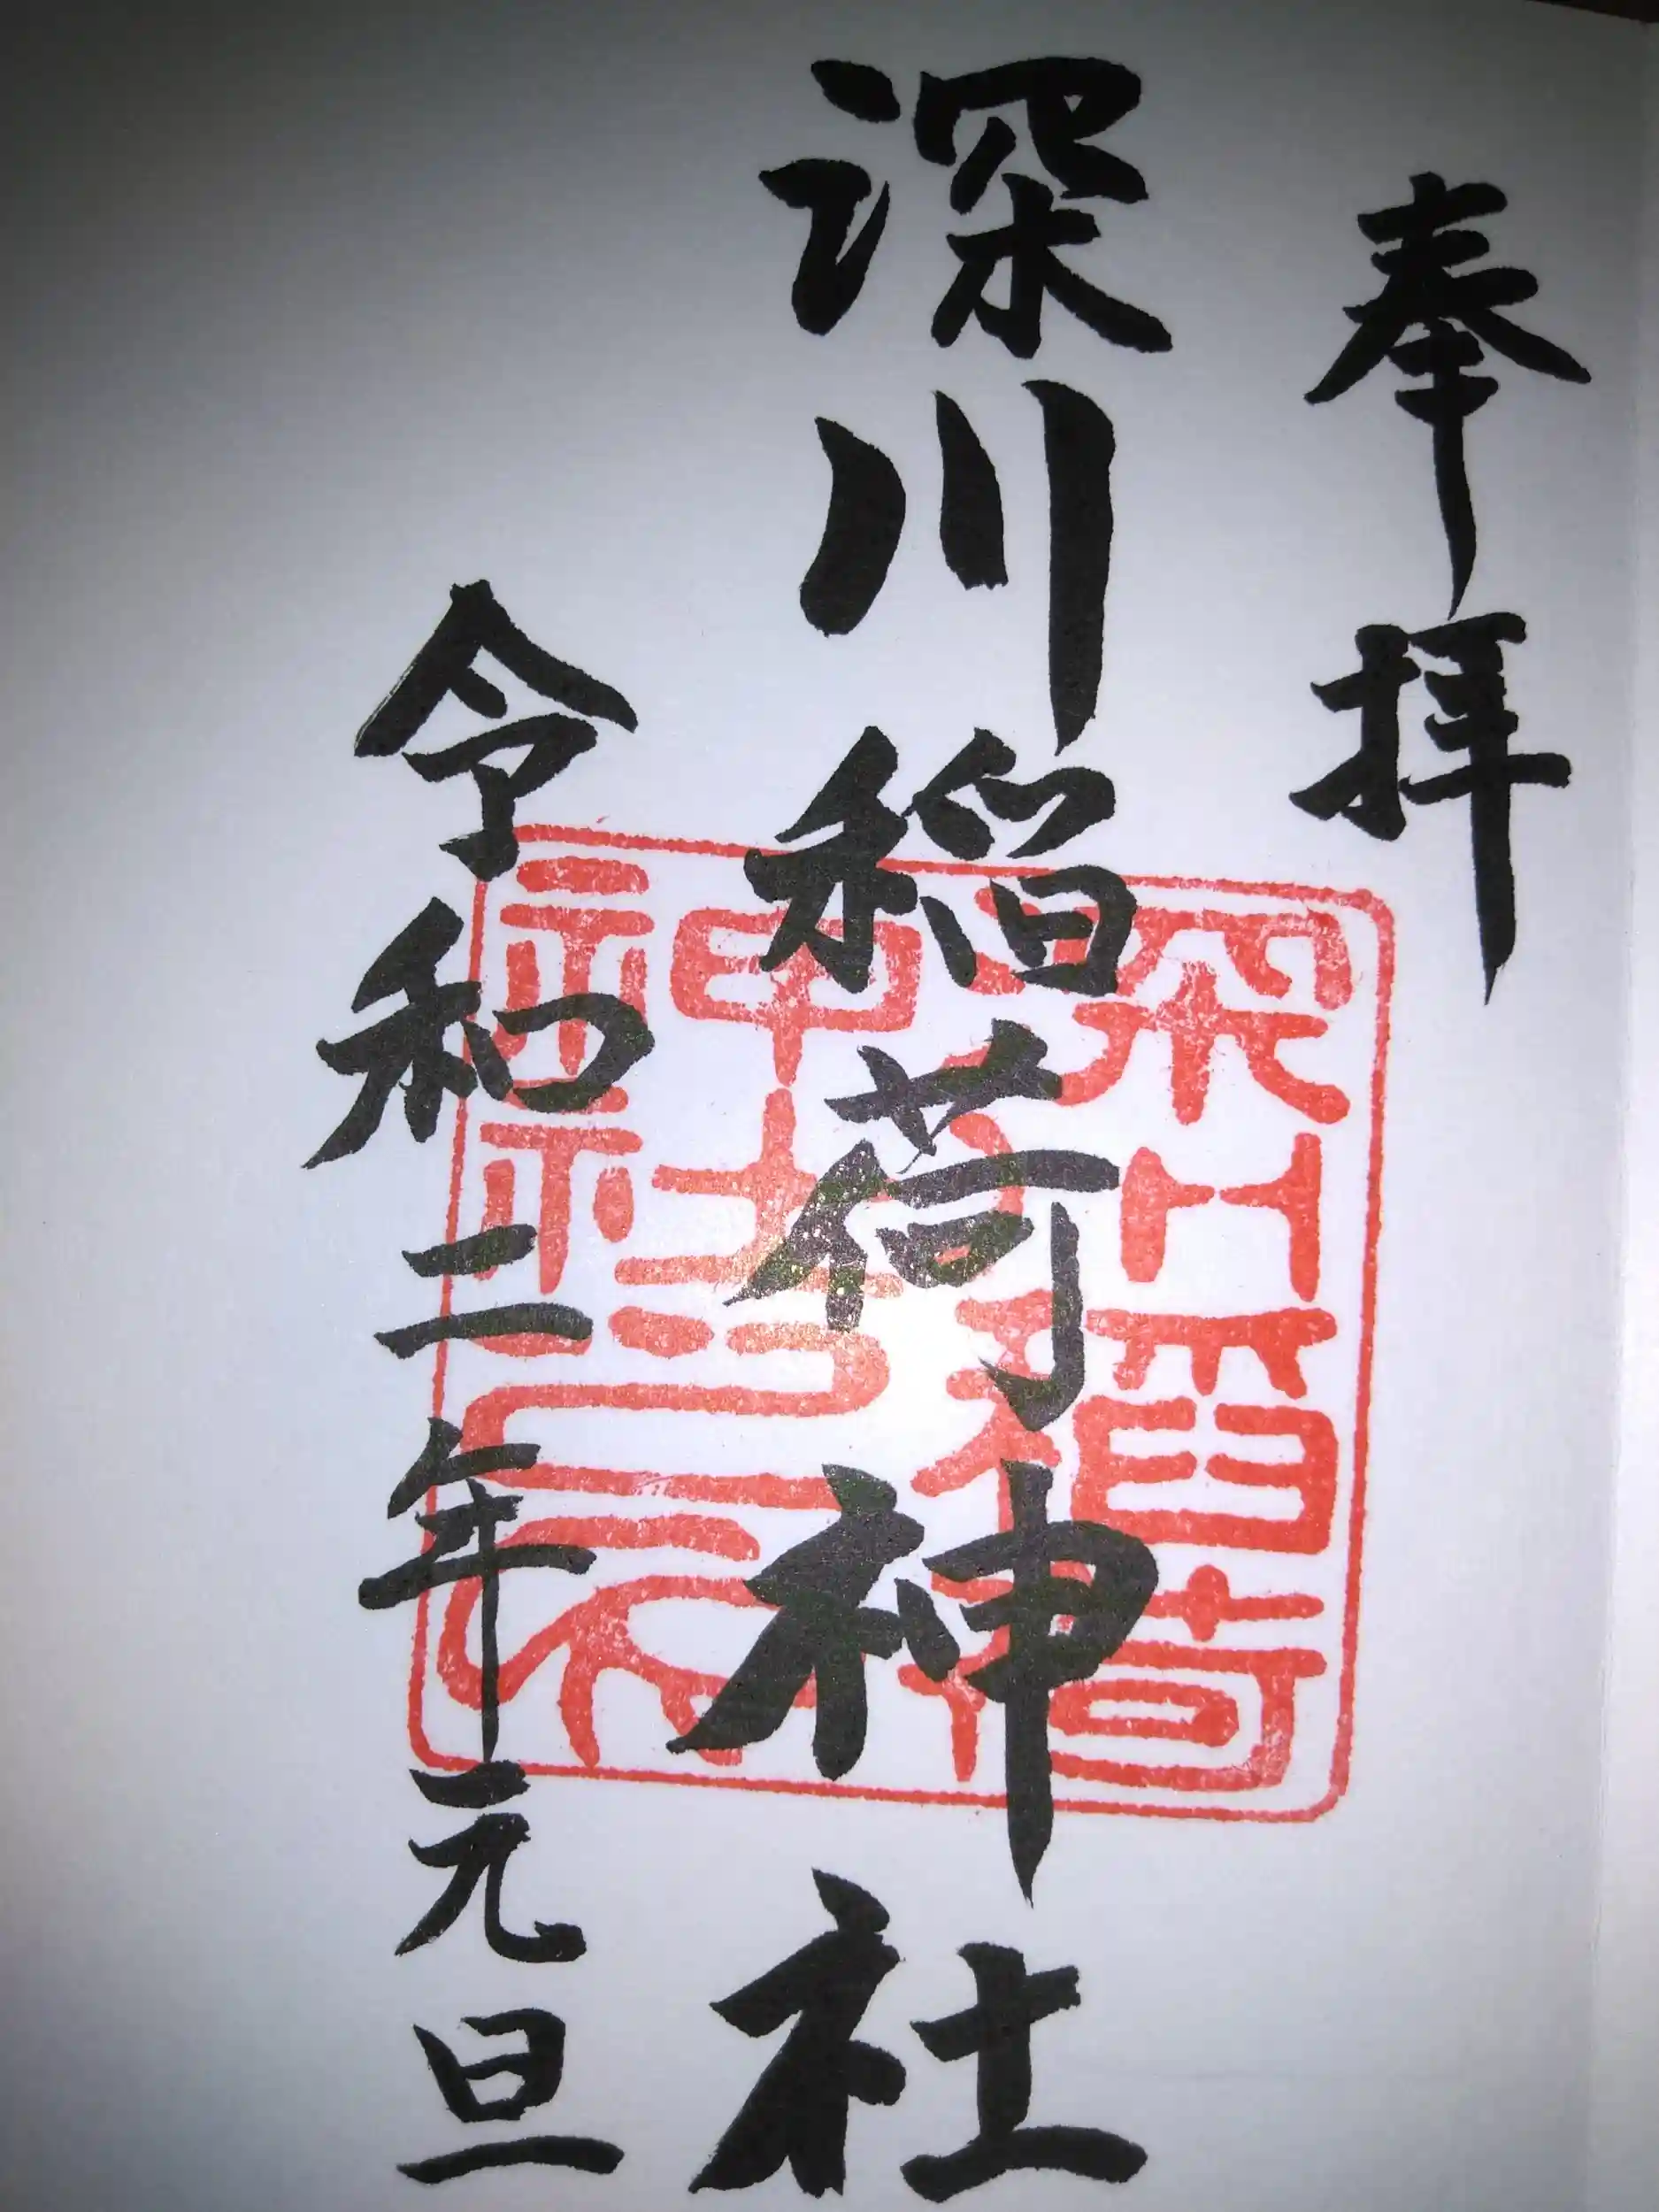 奉拝
深川稲荷神社
深川稲荷
神社之印
令和二年元旦